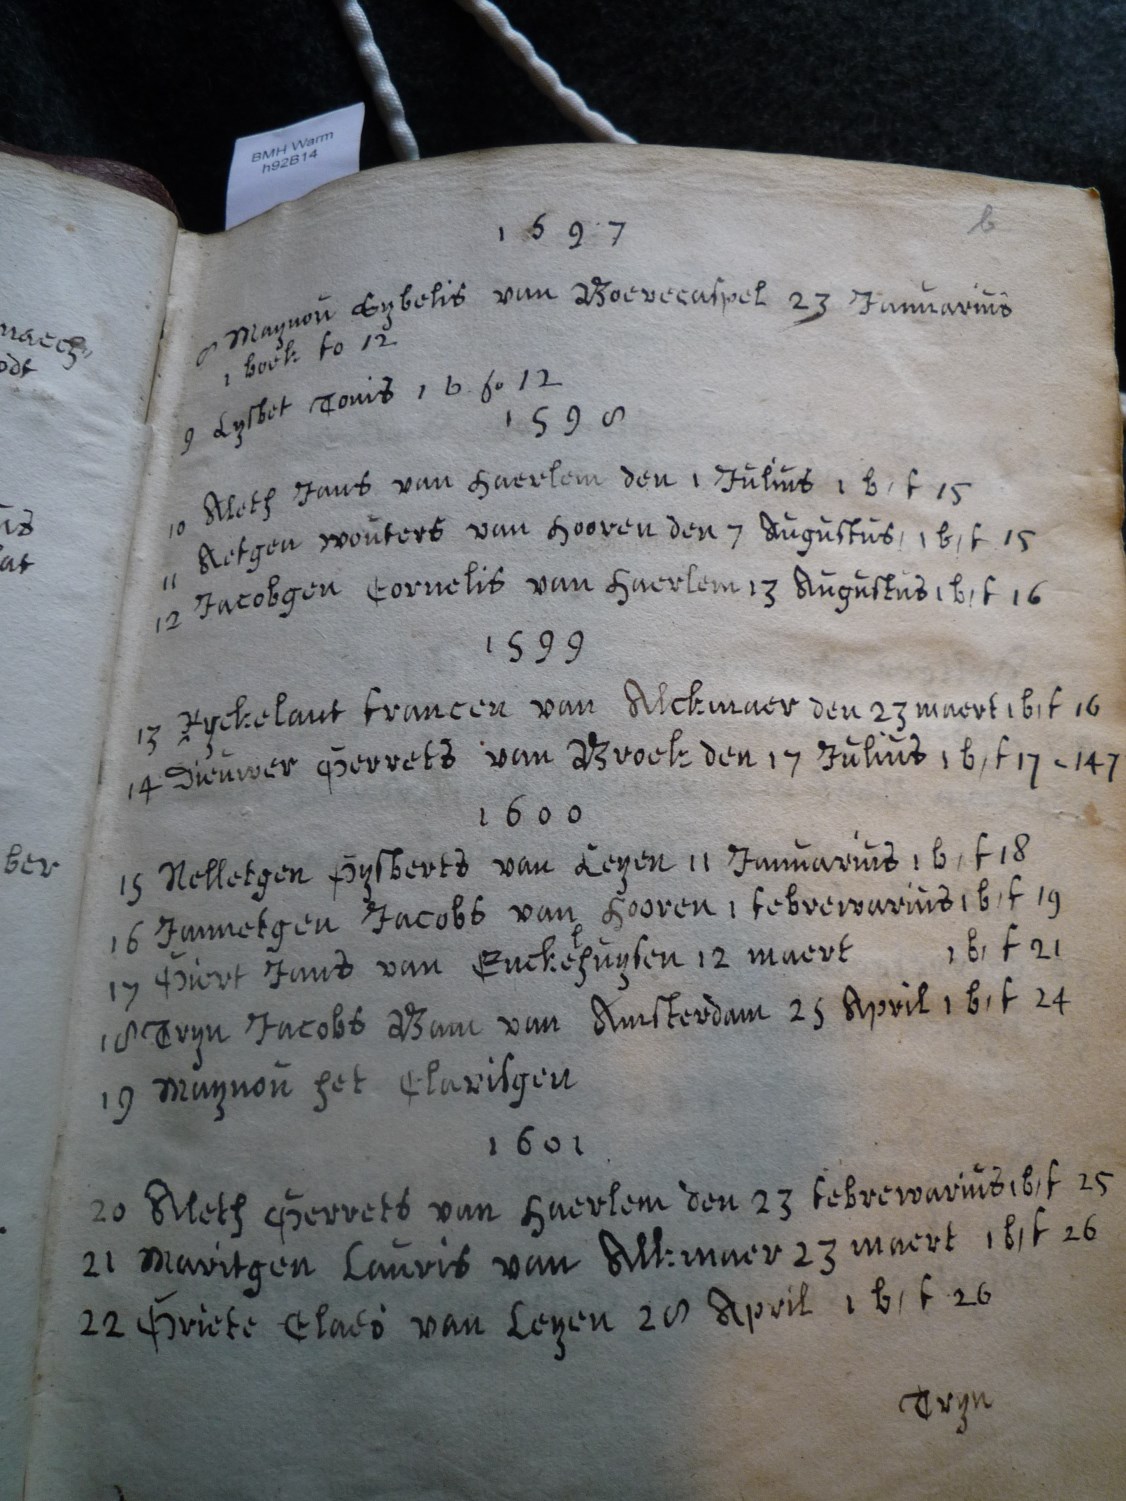 BMH Warm
h92B14
1597
b
8 Maÿnoŭ Sÿbelis van Boevecaspel 23 Januarius
1 boek fo 12
9 Lÿsbet Tonis 1 b fo 12
1598
10 Aleth Jans van Haerlem den 1 Julius 1 b, f 15
11 Aetgen wouters van Hooren den 7 Augustus, 1 b, f 15
12 Jacobgen Cornelis van Haerlem 13 Augustus 1 b, f 16
1599
13 francen van Alckmaer den 23 maert 1 b, f 16
14 Dieuwer Gerrets van Broek den 17 Julius 1 b, f 17 - 147
1600
15 Nelletgen Gÿsberts van Leÿen 11 Januarius 1 b, f 18
16 Jannetgen Jacobs van Hooren 1 febrewarius 1 b, f 19
17 Giert Jans van Enckehuÿsen 12 maert 1 b, f 21
18 Trÿn Jacobs Bam van Amsterdam 25 April 1 b, f 24
19 Maÿnoŭ het Clarisgen
1601
20 Aleth Gerrets van Haerlem den 23 febrewarius 1 b, f 25
21 Maritgen Lauris van Alkmaer 23 maert 1 b, f 26
22 Griete Claes van Leÿen 28 April 1 b, f 26
Trÿn
ber